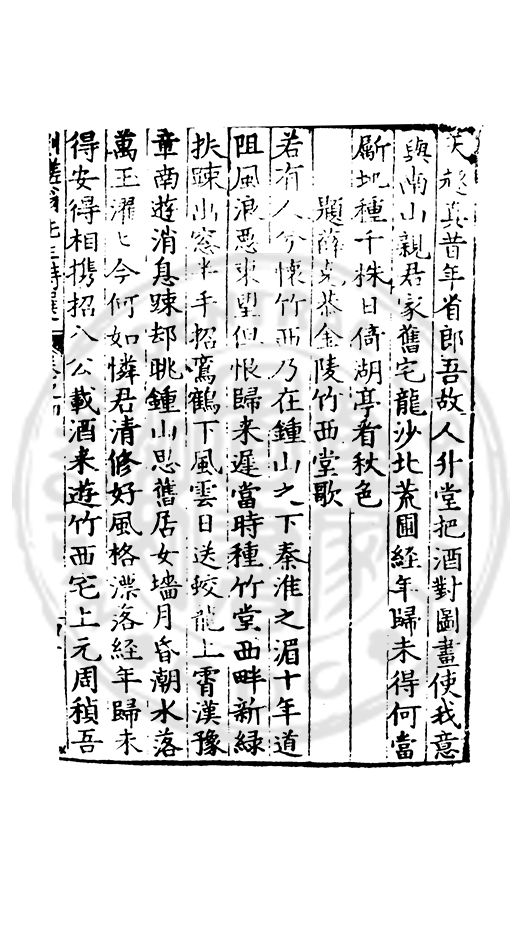 天趣真昔年省郎吾故人升堂把酒對圖畫使我意
與南山親君家舊宅龍沙北荒圃經年歸未得何當
斸地種千株日倚湖亭看秋色
題薛克恭金陵竹西堂歌
若有人兮懷竹西乃在鍾山之下秦淮之湄十年道
阻風浪惡東望但恨歸来遲當時種竹堂西畔新緑
扶踈出窓半手招鸞鶴下風雲日送蛟龍上霄漢豫
章南遊消息踈却眺鍾山思舊居女墻月昏潮水落
萬玉濯匕今何如憐君清修好風格漂落經年歸未
得安得相携招八公載酒来遊竹西宅上元周稹吾